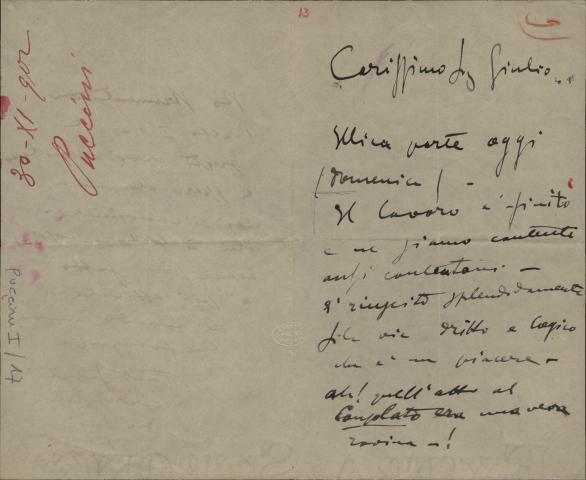 13
9
30-XI-902
Puccini
Puccini I / 17
Carissimo Sig Giulio..
Illica parte oggi
(domenica) -
Il lavoro è finito
e ne siamo contenti
anzi contentoni -
È riuscito splendidamente
fila via dritto e logico
che è un piacere -
ah! quell'atto al
Consolato era una vera
rovina -!